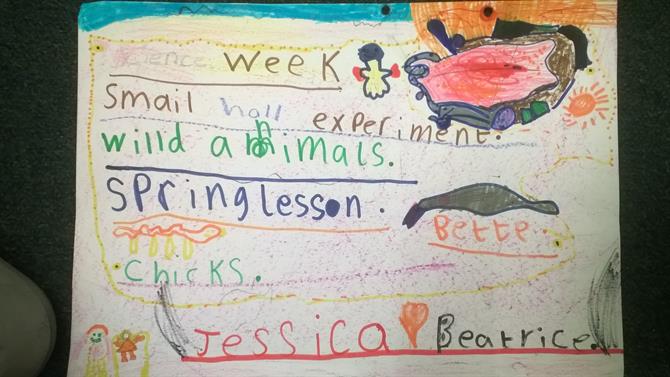 science week
Smail hall experiment.
willd animals.
Spring lesson.
Bette.
Chicks.
Jessica Beatrice.